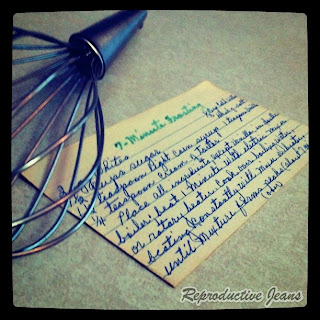 7-Minute Frosting
Whites
Cups sugar
1 Teaspoon light Corn syrup
1/4 Teaspoon Cream of Tarter
Place all ingredients except vanilla in double
boiler; beat 1 minute with electric mixer
or rotary beater. Cook over boiling water,
beating Constantly with mixer or beater,
until mixture forms peaks (about 7
Reproductive Jeans